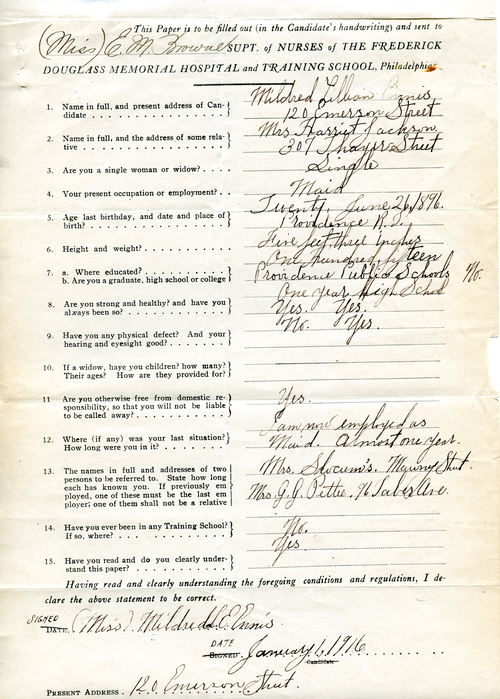 This Paper is to be filled out (in the Candidate's handwriting) and sent to
(Miss) E. M. Browne SUPT. of NURSES of THE FREDERICK
DOUGLASS MEMORIAL HOSPITAL and TRAINING SCHOOL, Philadelphia
1. Name in full, and present address of Can-
didate
Mildred Lillian Ennis
120 Emerson Street
2. Name in full, and the address of some rela-
tive
Mrs Harriet Jackson
307 Thayer Street
3. Are you a single woman or widow?
Single
4. Your present occupation or employment?
Maid
5. Age last birthday, and date and place of
birth?
Twenty, June 26, 1896.
Providence R.I.
6. Height and weight?
Five feet three inches
One hundred fifteen
7. a. Where educated?
b. Are you a graduate, high school or college
Providence Public Schools No.
One year High School
8. Are you strong and healthy? and have you
always been so?
Yes. Yes.
9. Have you any physical defect? And your
hearing and eyesight good?
No. Yes.
10. If a widow, have you children? how many?
Their ages? How are they provided for?
11 Are you otherwise free from domestic re-
sponsibility, so that you will not be liable
to be called away?
Yes.
12. Where (if any) was your last situation?
How long were you in it?
I am now employed as
Maid. Almost one year.
13. The names in full and addresses of two
persons to be referred to. State how long
each has known you. If previously em
ployed, one of these must be the last em
ployer; one of them shall not be a relative
Mrs. Slocum's. Street.
Mrs. G. G. 96 Ave.
14. Have you ever been in any Training School?
If so, where?
No.
15. Have you read and do you clearly under-
stand this paper?
Yes
Having read and clearly understanding the foregoing conditions and regulations, I de-
clare the above statement to be correct.
SIGNED
DATE, (Miss) Mildred L. Ennis
DATE
SIGNED January 1, 1916
Candidate
PRESENT ADDRESS. 120 Emerson Street.